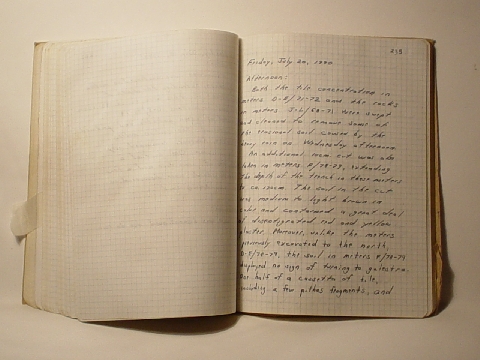 215
Friday, July 20, 1990
Afternoon:
Both the tile concentration in
meters D-E/71-72 and the rocks
in meters were swept
and cleaned to remove some of
the residual soil caused by the
heavy rain on Wednesday afternoon
An additional was also
taken in meters extending
the depth of the trench in these meters
to The soil in the cut
was medium to light brown in
color and contained a great deal
of disintegrated red and yellow
plaster. Moreover, unlike the meters
previously excavated to the north,
the soil in meters
displayed no sign of turning to
half of a of tile,
including a few pithos fragments, and